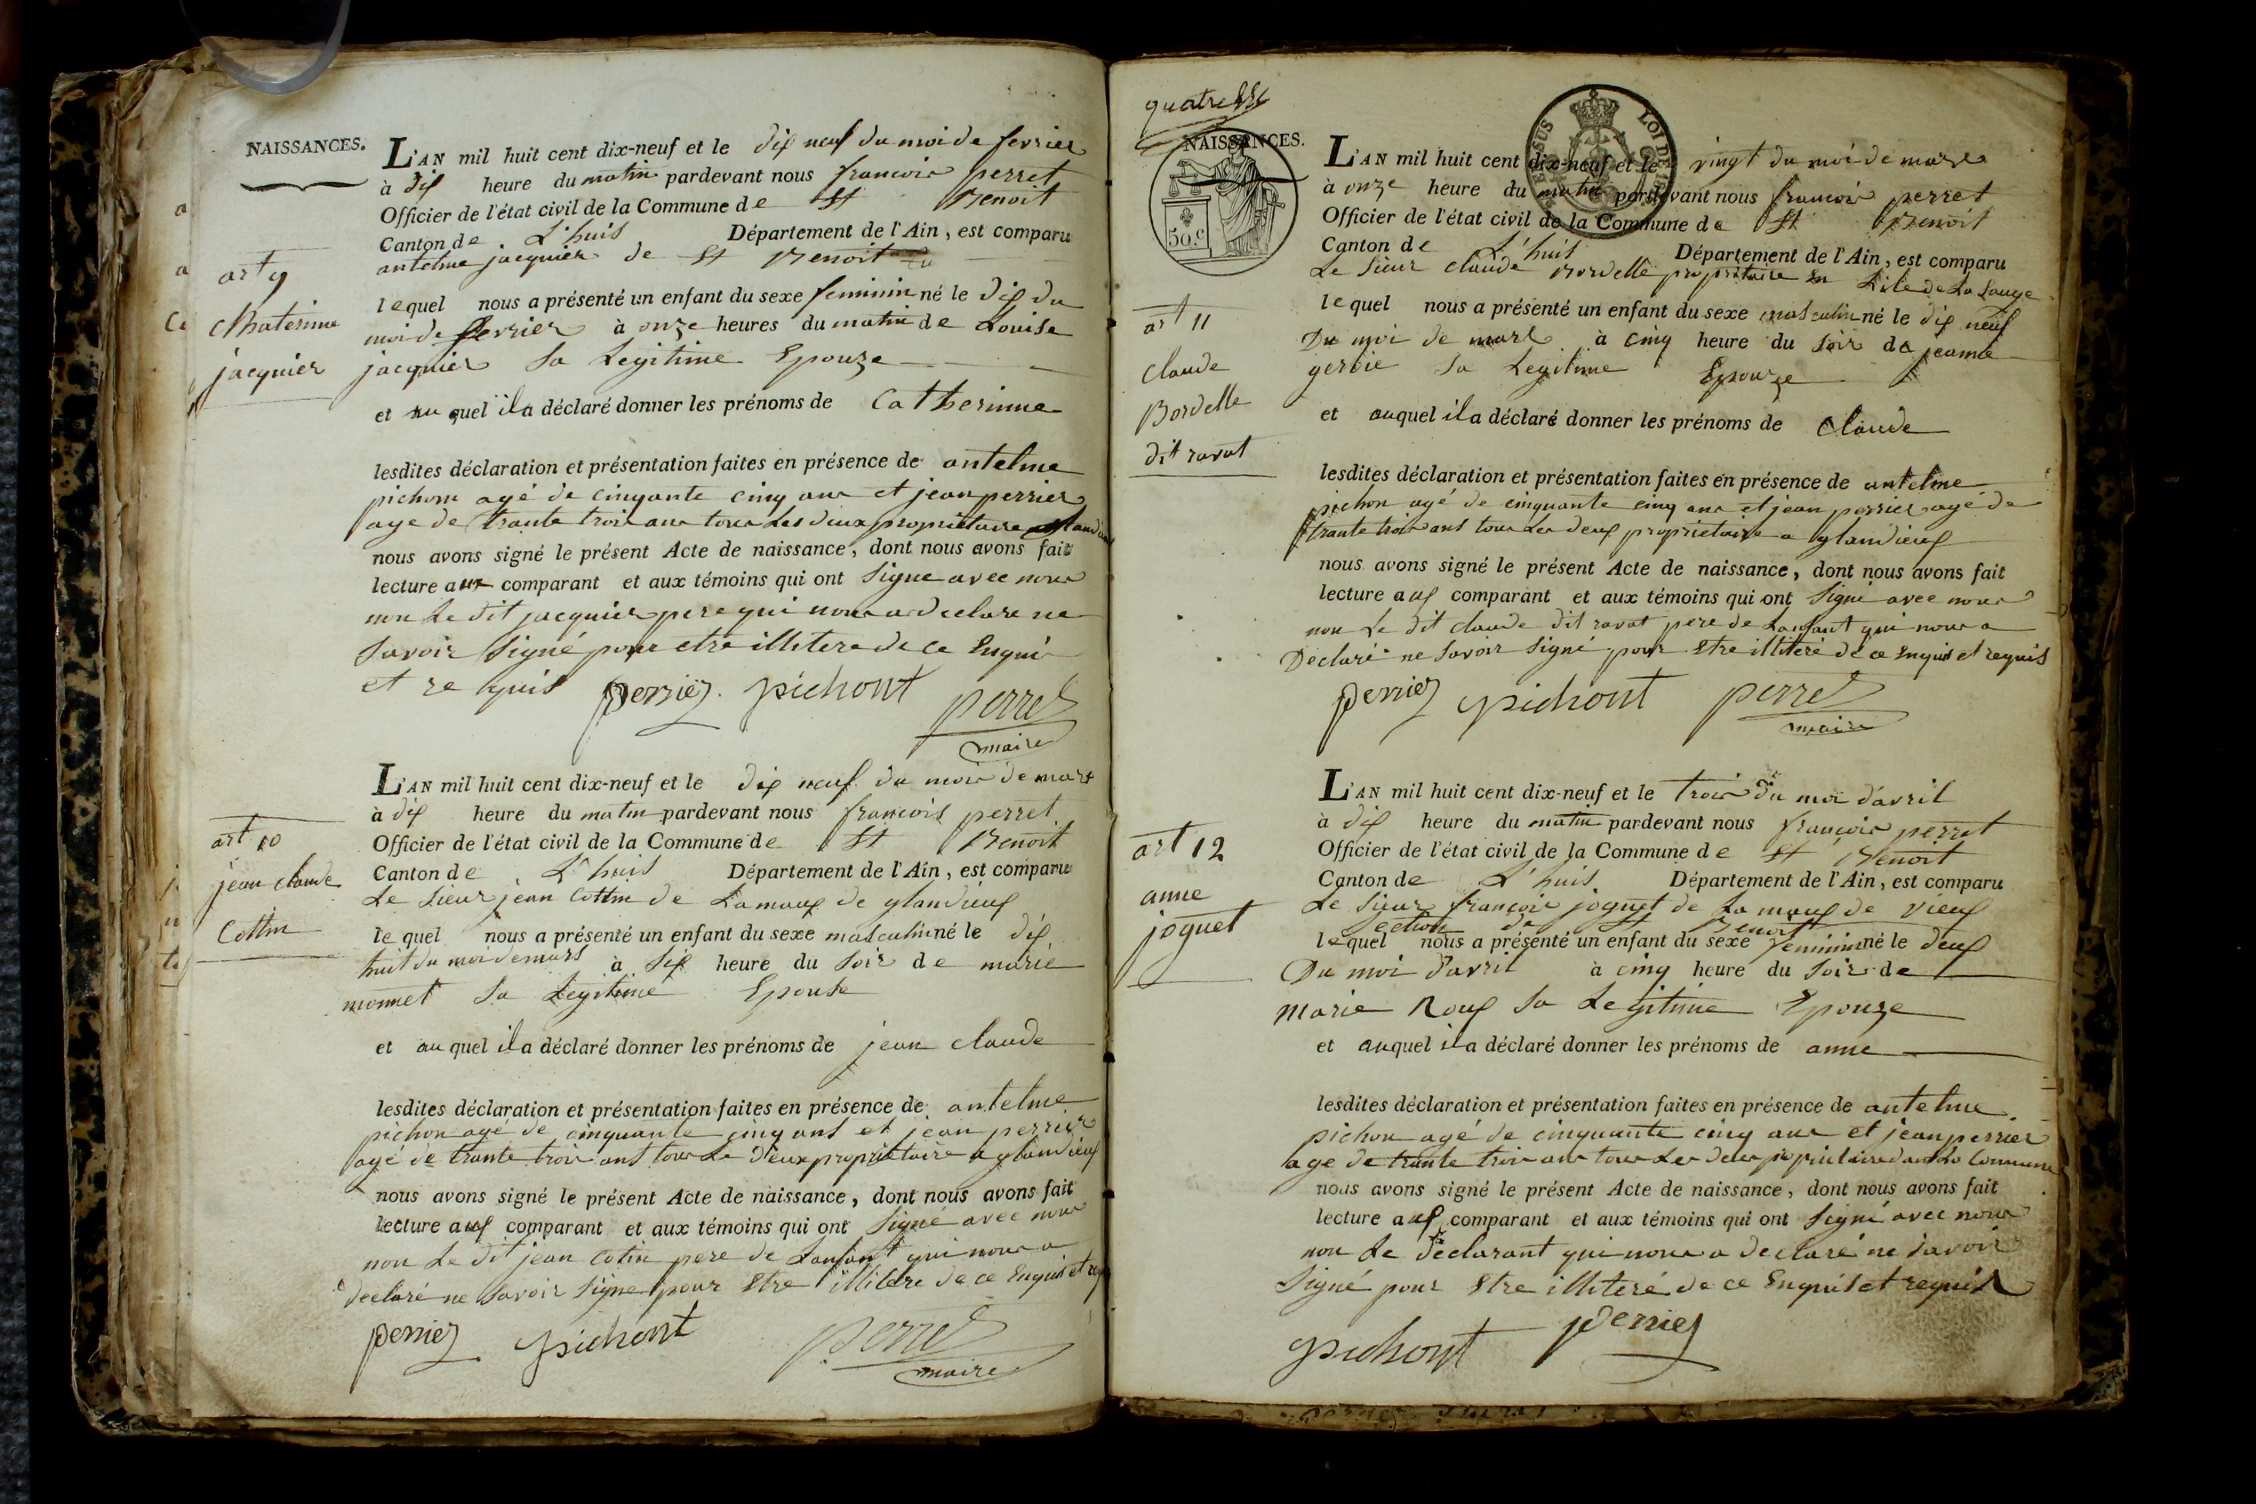 NAISSANCES.
art 9
Chaterinne
jacquier
L'AN mil huit cent dix-neuf et le dix neuf du moi de fevrier
à dix heure du matin pardevant nous francois perret
Officier de l'état civil de la Commune de St Benoit
Canton de L'huis Département de l'Ain, est comparu
antelme jacquier de St Benoit
lequel nous a présenté un enfant du sexe feminin né le dix du
moi de fevrier à onze heures du matin de Louise
jacquier sa Legitime Epouze
et auquel il a déclaré donner les prénoms de Catherinne
lesdites déclaration et présentation faites en présence de antelme
pichon agé de cinquante cinq ans et jean perrier
age de trante troi ans tous Les deux proprietaire
nous avons signé le présent Acte de naissance, dont nous avons fait
lecture aux comparant et aux témoins qui ont Signe avec nous
non Le dit jacquier pere qui nous a declare ne
Savoir Signé pour etre illitere de ce Enquis
et requis perrier pichont perret
maire
art 10
jean claude
Cottin
L'AN mil huit cent dix-neuf et le dix neuf du mois de mars
à dix heure du matin pardevant nous francois perret
Officier de l'état civil de la Commune de St Benoit
Canton de L'huis Département de l'Ain, est comparu
Le Sieur jean Cottin de Lamaux de glandieux
le quel nous a présenté un enfant du sexe masculin né le dix
huit du moi de mars à six heure du soir de marie
monnet Sa Legitime Epouse
et au quel il a déclaré donner les prénoms de jean claude
lesdites déclaration et présentation faites en présence de antelme
pichon agé de cinquante cinq ans et jean perrier
agé de trante troi ans tous Le deux proprietaire a glandieux
nous avons signé le présent Acte de naissance, dont nous avons fait
lecture aux comparant et aux témoins qui ont Signé avec nous
non Le dit jean Cotin pere de Lanfant qui nous a
declaré ne Savoir Signe pour Etre illitere de ce Enquis et req
perrier pichont perret
maire
quatre
NAISSANCES.
50.c
LOI DE
art 11
Claude
Bordelle
dit ravat
L'AN mil huit cent dix-neuf et le vingt du moi de mars
à onze heure du matin pardevant nous francois perret
Officier de l'état civil de la Commune de St Benoit
Canton de L'huis Département de l'Ain, est comparu
Le Sieur Claude Bordelle propritaire en L'ile de La Sauge
le quel nous a présenté un enfant du sexe masculin né le dix neuf
Du moi de mars à cinq heure du Soir de jeanne
gerbie Sa Legitime Epouze
et auquel il a déclaré donner les prénoms de Claude
lesdites déclaration et présentation faites en présence de antelme
pichon agé de cinquante cinq ans et jean perrier agé de
trante trois ans tous Les deux proprietaire a glandieux
nous avons signé le présent Acte de naissance, dont nous avons fait
lecture aux comparant et aux témoins qui ont Signé avec nous
non Le dit claude dit ravat pere de Lanfant qui nous a
Declaré ne Savoir Signé pour Etre illiteré de ce Enquis et requis
perrier pichont perret
maire
art 12
anne
joguet
L'AN mil huit cent dix-neuf et le trois du moi d'avril
à dix heure du matin pardevant nous françois perret
Officier de l'état civil de la Commune de St Benoit
Canton de L'huis Département de l'Ain, est comparu
Le Sieur françois joguet de La maux de vieux
Section de St Benoit
lequel nous a présenté un enfant du sexe feminin né le deux
Du moi d'avril à cinq heure du Soir de
marie Roux Sa Legitime Epouze
et auquel il a déclaré donner les prénoms de anne
lesdites déclaration et présentation faites en présence de antelme
pichon agé de cinquante cinq ans et jean perrier
age de trante troi ans tous Les deux proprietaire dans La Commune
nous avons signé le présent Acte de naissance, dont nous avons fait
lecture aux comparant et aux témoins qui ont Signé avec nous
non Le declarant qui nous a declaré ne Savoir
Signé pour Etre illiteré de ce Enquis et requis
pichont perrier